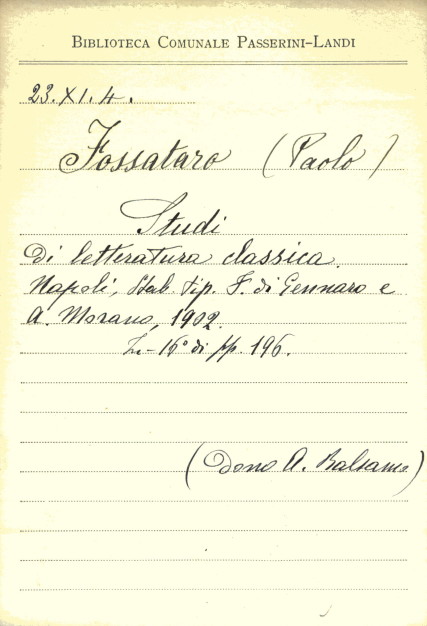 BIBLIOTECA COMUNALE PASSERINI-LANDI
23.XI.4.
Fossataro (Paolo)
Studi
di letteratura classica.
Napoli, Stab. tip. F. di Gennaro e
A. Morano, 1902.
In-16° di pp. 196.
(Dono A. Balsamo)